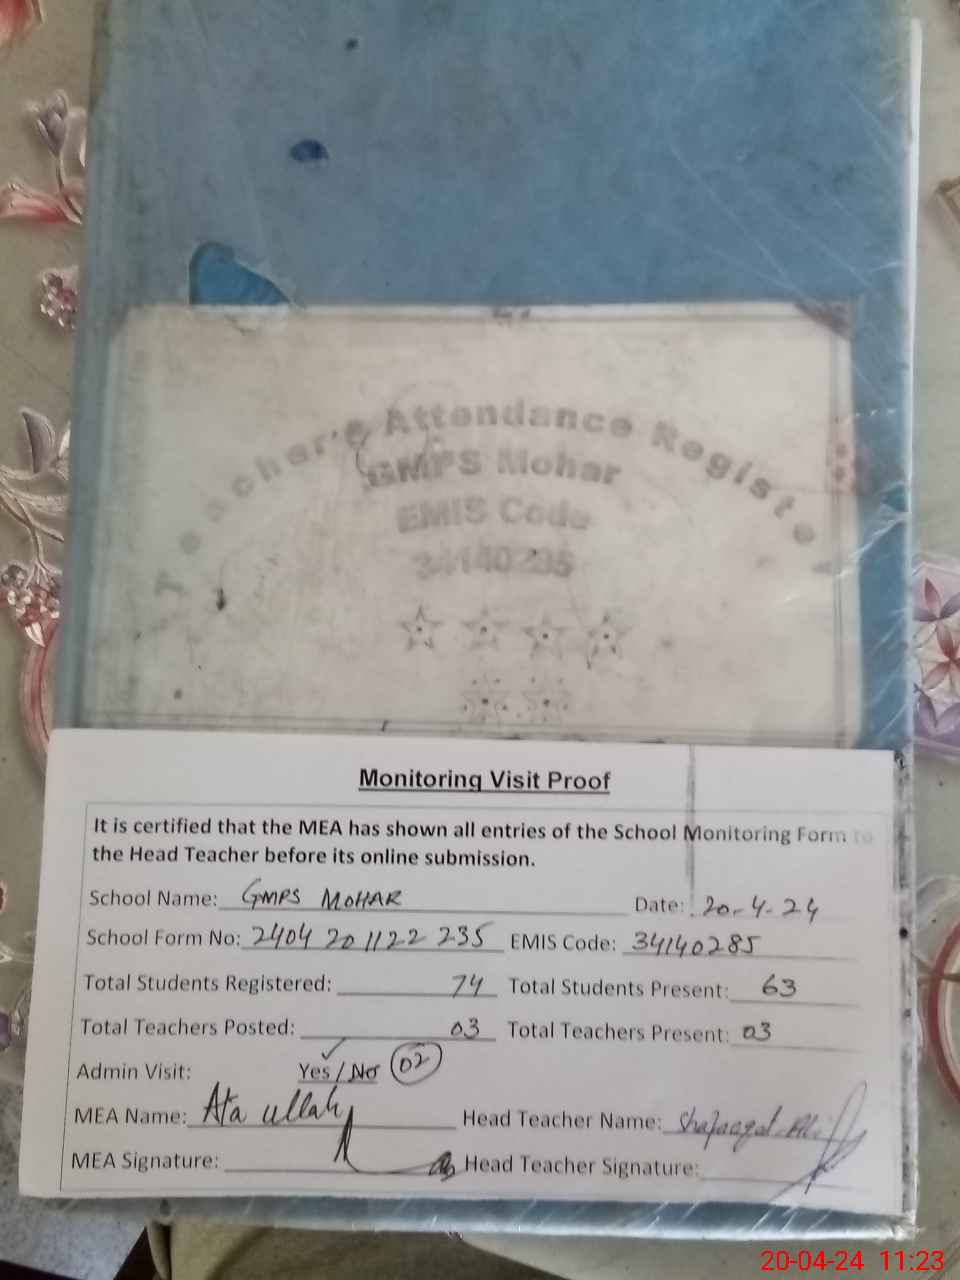 Teacher's Attendance Register
GMPS Mohar
EMIS Code
Monitoring Visit Proof
It is certified that the MEA has shown all entries of the School Monitoring Form to
the Head Teacher before its online submission.
School Name: GMPS MOHAR Date: 20-4-24
School Form No: 2404 20 1122 235 EMIS Code: 34140285
Total Students Registered: 74 Total Students Present: 63
Total Teachers Posted: 03 Total Teachers Present: 03
Admin Visit: Yes / No 02
MEA Name: Ata ullah Head Teacher Name:
MEA Signature: Head Teacher Signature:
20-04-24 11:23